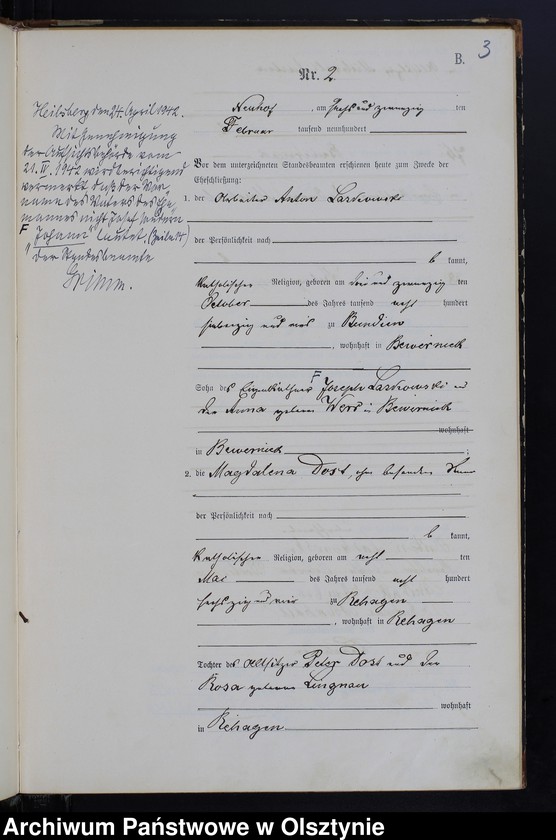 B.
3
Nr. 2.
Heilsberg den 24. April 1942.
Mit Genehmigung
der Aufsichtsbehörde vom
21. IV. 1942 wird berichtigend
vermerkt, daß der Vor-
name des Vaters des Ehe-
mannes nicht Josef sondern
F Johann lautet. (Zeile 14)
Der Standesbeamte
Grimm.
Neuhof, am sechs und zwanzig ten
Februar tausend neunhundert
Vor dem unterzeichneten Standesbeamten erschienen heute zum Zwecke der
Eheschließung:
1. der Arbeiter Anton Laskowski
der Persönlichkeit nach
be kannt,
katholischer Religion, geboren am drei und zwanzig ten
October des Jahres tausend acht hundert
siebenzig und eins zu Bundien
, wohnhaft in Bewernick
Sohn des Eigenkäthner F Joseph Laskowski und
der Anna geborene in Bewernick
wohnhaft
in Bewernick
2. die Magdalena Dost, ohne besonderen Stand
der Persönlichkeit nach
be kannt,
katholischer Religion, geboren am acht ten
Mai des Jahres tausend acht hundert
sechszig und neun zu Rehagen
, wohnhaft in Rehagen
Tochter des Altsitzer Peter Dost und der
Rosa geborene Lingnau
wohnhaft
in Rehagen
Archiwum Państwowe w Olsztynie